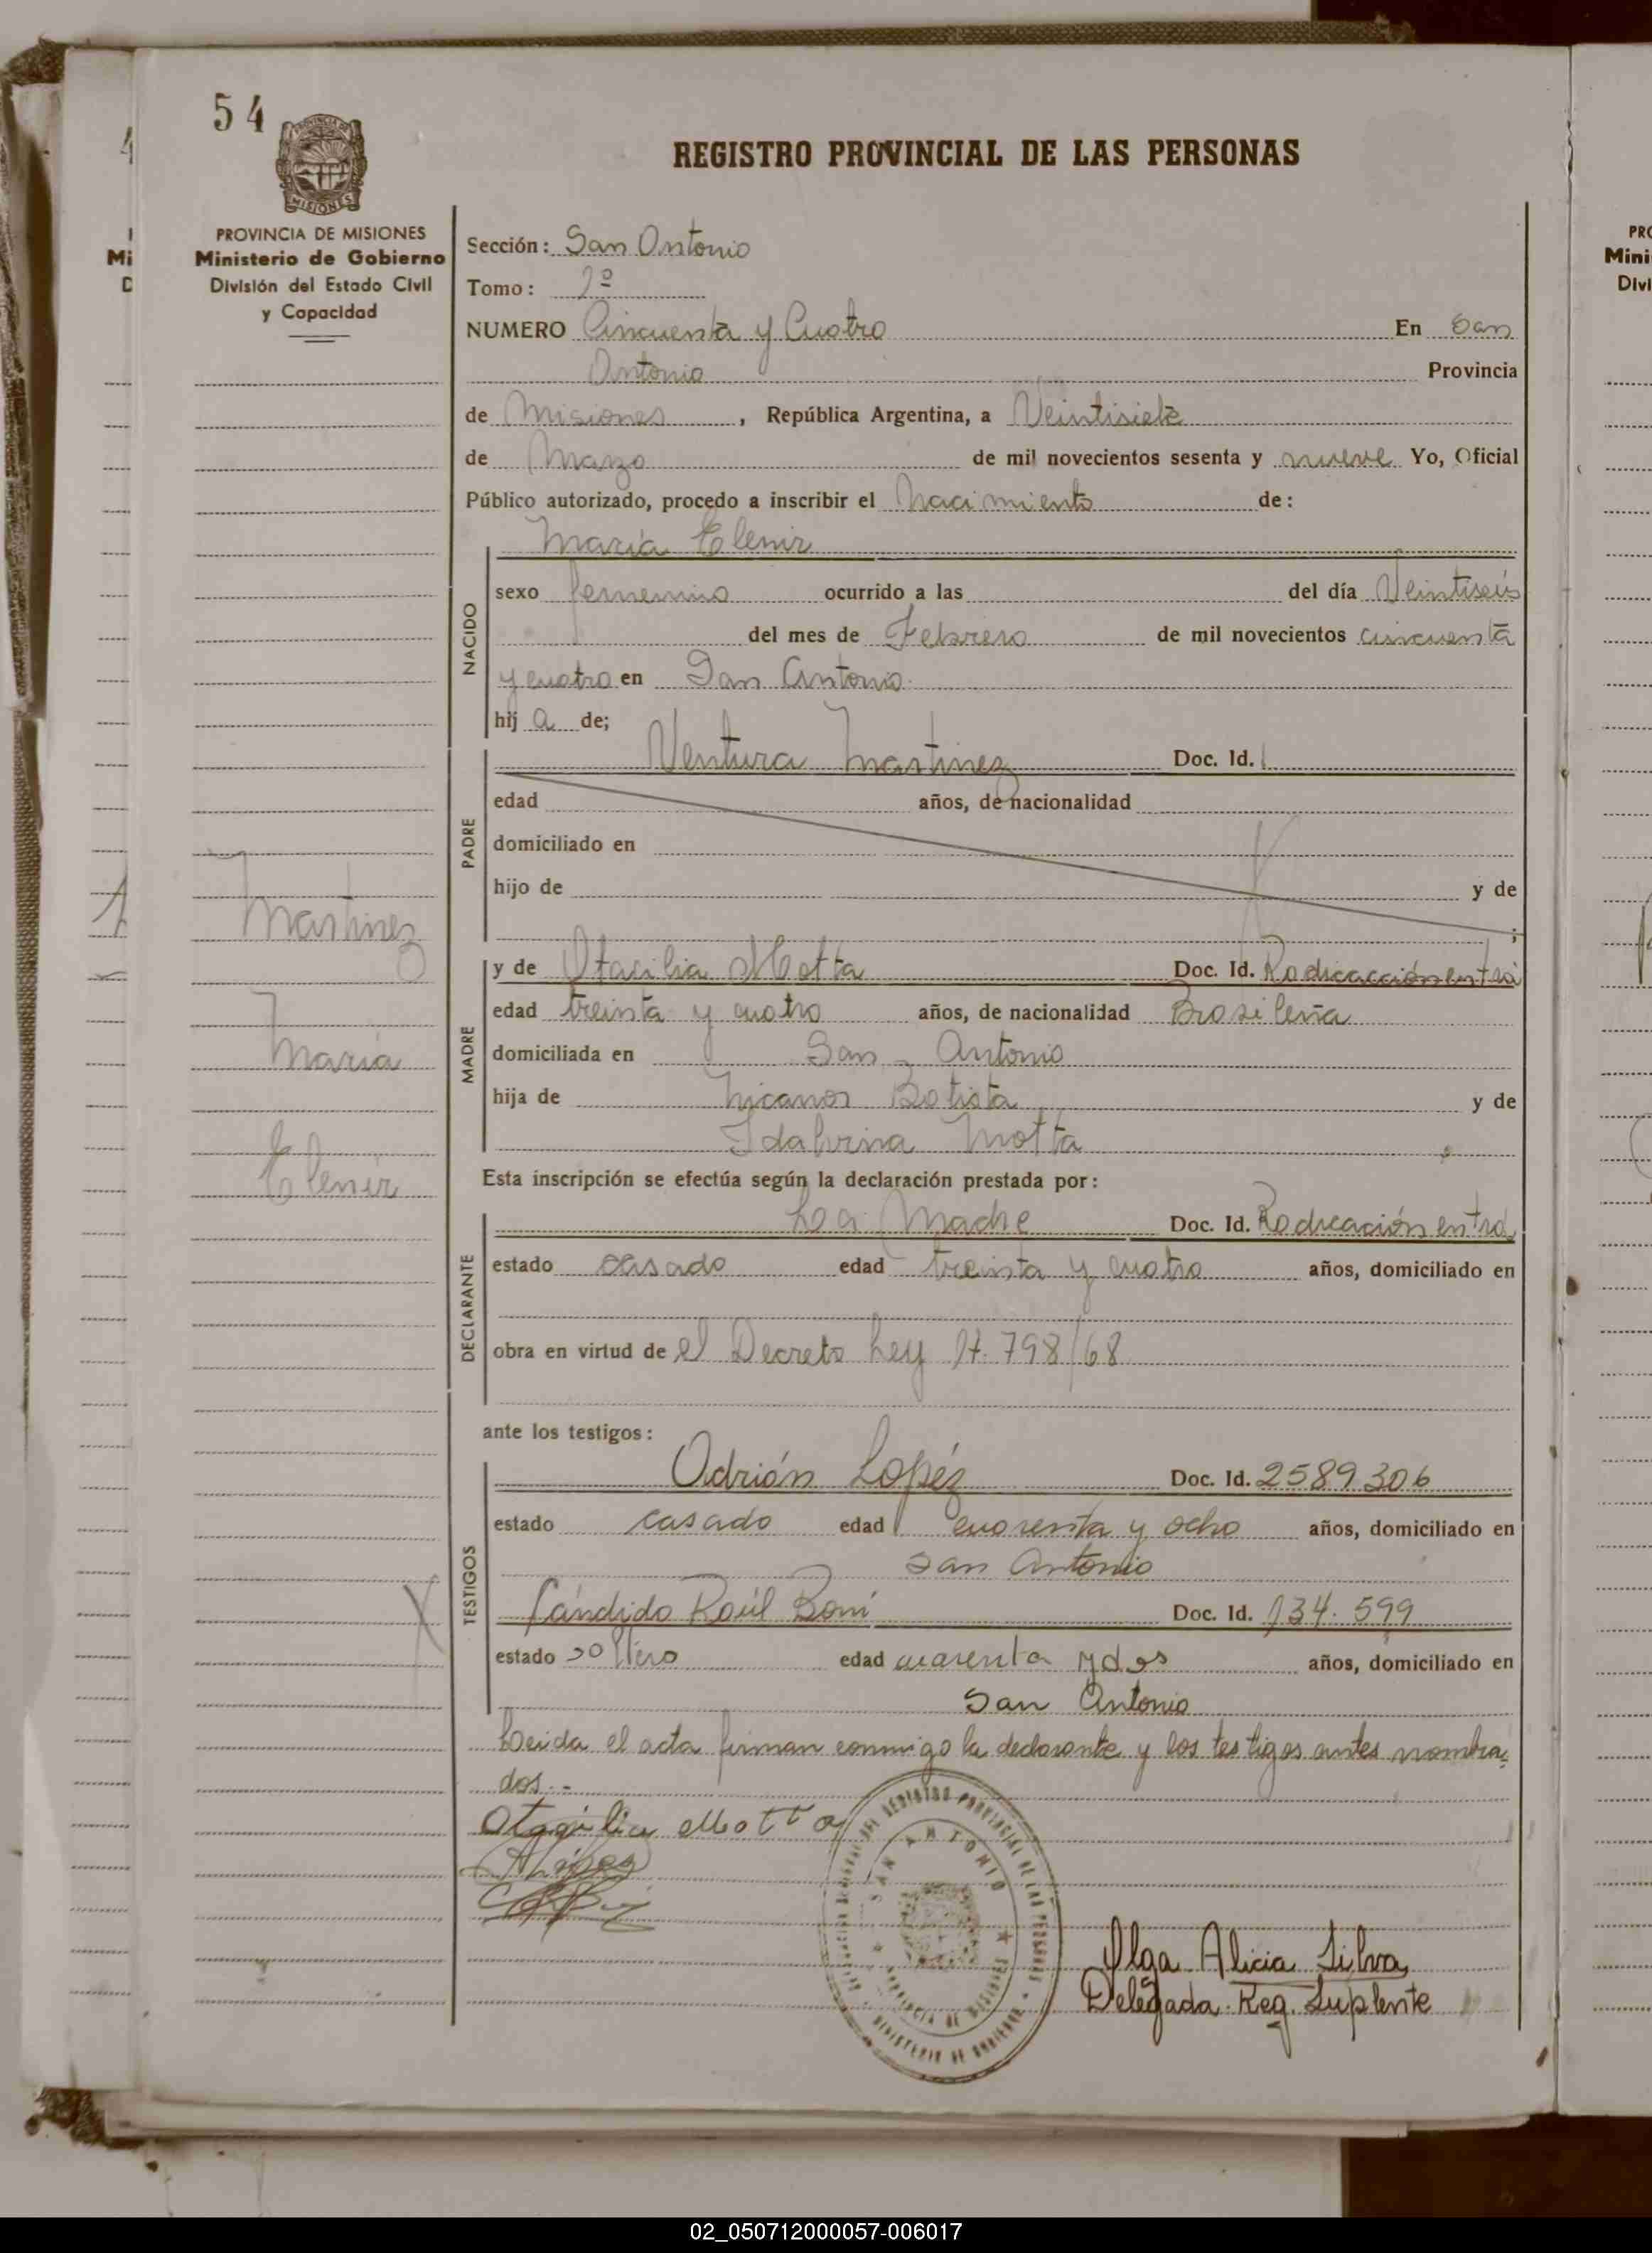 54
PROVINCIA DE MISIONES
Ministerio de Gobierno
División del Estado Civil
y Capacidad
REGISTRO PROVINCIAL DE LAS PERSONAS
Sección: San Antonio
Tomo: 1º
NUMERO Cincuenta y Cuatro En San
Antonio Provincia
de Misiones, República Argentina, a Veintisiete
de Marzo de mil novecientos sesenta y nueve Yo, Oficial
Público autorizado, procedo a inscribir el Nacimiento de:
María Elenir
NACIDO
sexo femenino ocurrido a las del día Veintiseis
del mes de Febrero de mil novecientos cincuenta
y cuatro en San Antonio.
hij a de;
PADRE
Ventura Martinez Doc. Id.
edad años, de nacionalidad
domiciliado en
hijo de y de
;
Martinez
María
Elenir
MADRE
y de Otacilia Motta Doc. Id. Radicacción entrá
edad treinta y cuatro años, de nacionalidad Brasileña
domiciliada en San Antonio
hija de Nicanor Batista y de
Idalvina Motta
Esta inscripción se efectúa según la declaración prestada por:
DECLARANTE
La Madre Doc. Id. Radicación entrá
estado casado edad treinta y cuatro años, domiciliado en
obra en virtud de el Decreto Ley 17.798/68
ante los testigos:
TESTIGOS
Adrián Lopéz Doc. Id. 2589.306
estado casado edad cuarenta y ocho años, domiciliado en
San Antonio
Cándido Raúl Boni Doc. Id. 134.599
estado soltero edad cuarenta y dos años, domiciliado en
San Antonio
Leida el acta firman conmigo la declarante y los testigos antes nombra-
dos.-
Otaqilia Motta
ALópez
SAN ANTONIO
PROVINCIA DE MISIONES
MINISTERIO DE GOBIERNO
Olga Alicia Silva
Delegada Reg. Suplente
02_050712000057-006017